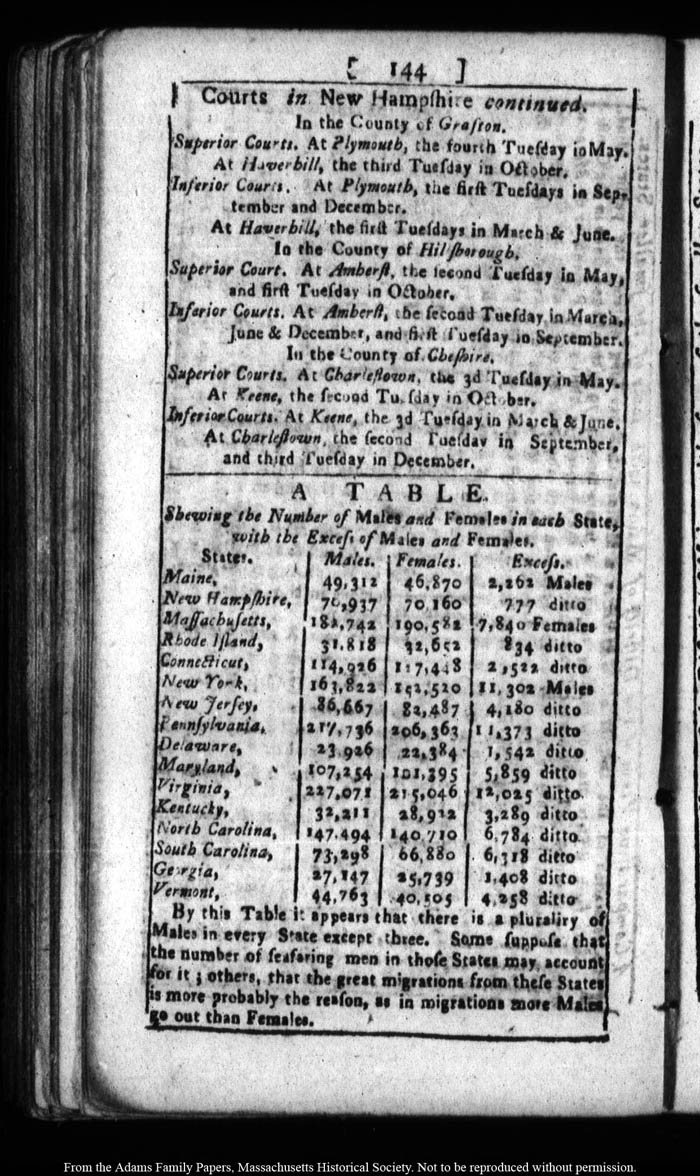 [ 144 ]
Courts in New Hampſhire continued.
In the County of Grafton.
Superior Courts. At Plymouth, the fourth Tueſday in May.
At Haverhill, the third Tueſday in October.
Inferior Courts. At Plymouth, the firſt Tueſdays in Sep-
tember and December.
At Haverhill, the firſt Tueſdays in March & June.
In the County of Hilſborough.
Superior Court. At Amherſt, the ſecond Tueſday in May,
and firſt Tueſday in October.
Inferior Courts. At Amherſt, the ſecond Tueſday in March,
June & December, and firſt Tueſday in September.
In the County of Cheſhire.
Superior Courts. At Charleſtown, the 3d Tueſday in May.
At Keene, the ſecond Tueſday in October.
Inferior Courts. At Keene, the 3d Tueſday in March & June.
At Charleſtown, the ſecond Tueſday in September,
and third Tueſday in December.
A TABLE.
Shewing the Number of Males and Females in each State,
with the Exceſs of Males and Females.
States. Males. Females. Exceſs.
Maine, 49,312 46,870 2,262 Males
New Hampſhire, 70,937 70,160 777 ditto
Maſſachuſetts, 182,742 190,582 7,840 Females
Rhode Iſland, 31,818 32,652 834 ditto
Connecticut, 114,926 117,448 2,522 ditto
New York, 163,822 152,520 11,302 Males
New Jerſey, 86,667 82,487 4,180 ditto
Pennſylvania, 217,736 206,363 11,373 ditto
Delaware, 23,926 22,384 1,542 ditto
Maryland, 107,254 101,395 5,859 ditto
Virginia, 227,071 215,046 12,025 ditto
Kentucky, 32,211 28,922 3,289 ditto
North Carolina, 147,494 140,710 6,784 ditto
South Carolina, 73,298 66,880 6,318 ditto
Georgia, 27,147 25,739 1,408 ditto
Vermont, 44,763 40,505 4,258 ditto
By this Table it appears that there is a plurality of
Males in every State except three. Some ſuppoſe that
the number of ſeafaring men in thoſe States may account
for it ; others, that the great migrations from theſe States
is more probably the reaſon, as in migrations more Males
go out than Females.
From the Adams Family Papers, Massachusetts Historical Society. Not to be reproduced without permission.